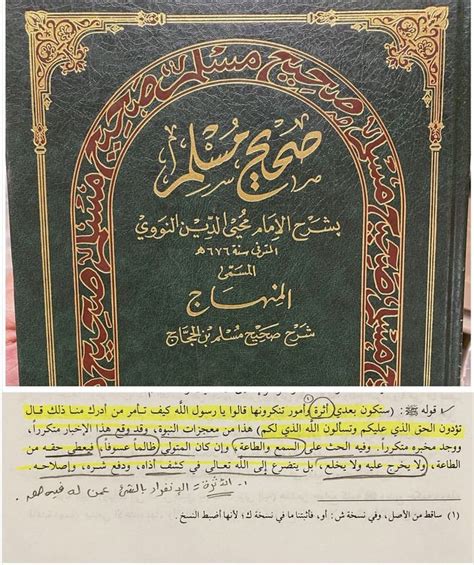 صحيح مسلم
بشرح الإمام محيي الدين النووي
المتوفى سنة ٦٧٦ هـ
المسمى
المنهاج
شرح صحيح مسلم بن الحجاج
قوله ﷺ: (ستكون بعدي أثرة وأمور تنكرونها قالوا يا رسول الله كيف تأمر من أدرك منا ذلك قال
تؤدون الحق الذي عليكم وتسألون الله الذي لكم) هذا من معجزات النبوة، وقد وقع هذا الإخبار متكرراً،
ووجد مخبره متكرراً. وفيه الحث على السمع والطاعة، وإن كان المتولي ظالماً عسوفاً، فيعطى حقه من
الطاعة، ولا يخرج عليه ولا يخلع، بل يتضرع إلى الله تعالى في كشف أذاه، ودفع شره، وإصلاحه.
١- الأثرة = الإنفراد بالشيء عمن له فيه حق
(١) ساقط من الأصل، وفي نسخة ش: أو، فأثبتنا ما في نسخة ك؛ لأنها أضبط النسخ.